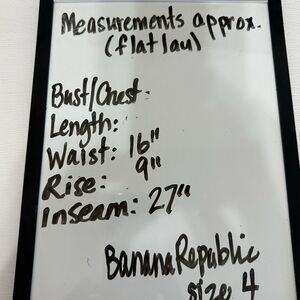 Measurements approx.
(flatlau)
Bust/Chest:
Length:
Waist: 16"
Rise: 9"
Inseam: 27"
BananaRepublic
size 4